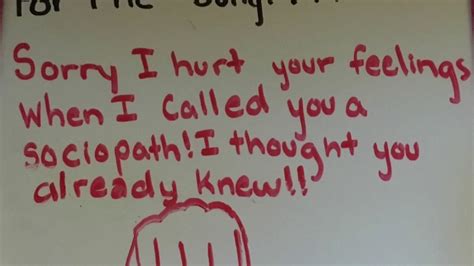 Sorry I hurt your feelings
when I called you a
sociopath! I thought you
already knew!!